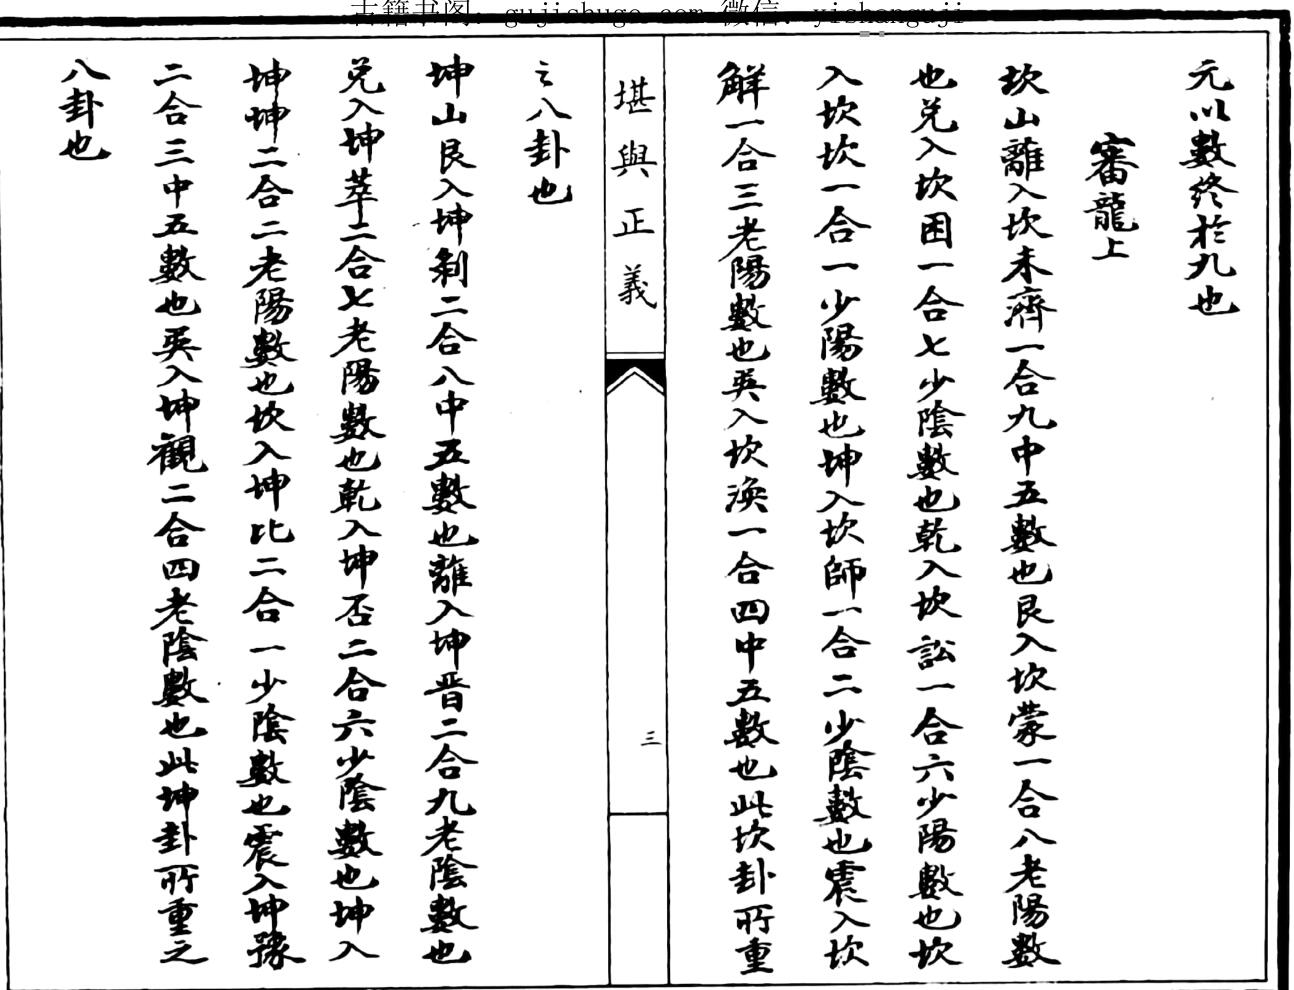 古籍书阁：gujishuge.com 微信：yishanguji
元以數終於九也
審龍上
坎山離入坎未濟一合九中五數也艮入坎蒙一合八老陽數
也兌入坎困一合七少陰數也乾入坎訟一合六少陽數也坎
入坎坎一合一少陽數也坤入坎師一合二少陰數也震入坎
解一合三老陽數也巽入坎渙一合四中五數也此坎卦所重
堪輿正義
三
之八卦也
坤山艮入坤剝二合八中五數也離入坤晋二合九老陰數也
兌入坤萃二合七老陽數也乾入坤否二合六少陰數也坤入
坤坤二合二老陽數也坎入坤比二合一少陰數也震入坤豫
二合三中五數也巽入坤觀二合四老陰數也此坤卦所重之
八卦也